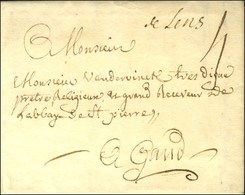 de Lens
4
Monsieur
Monsieur Vandervinck tres digne
pretre Religieux et grand Receveur De
Labbaye de St pierre
A Gand